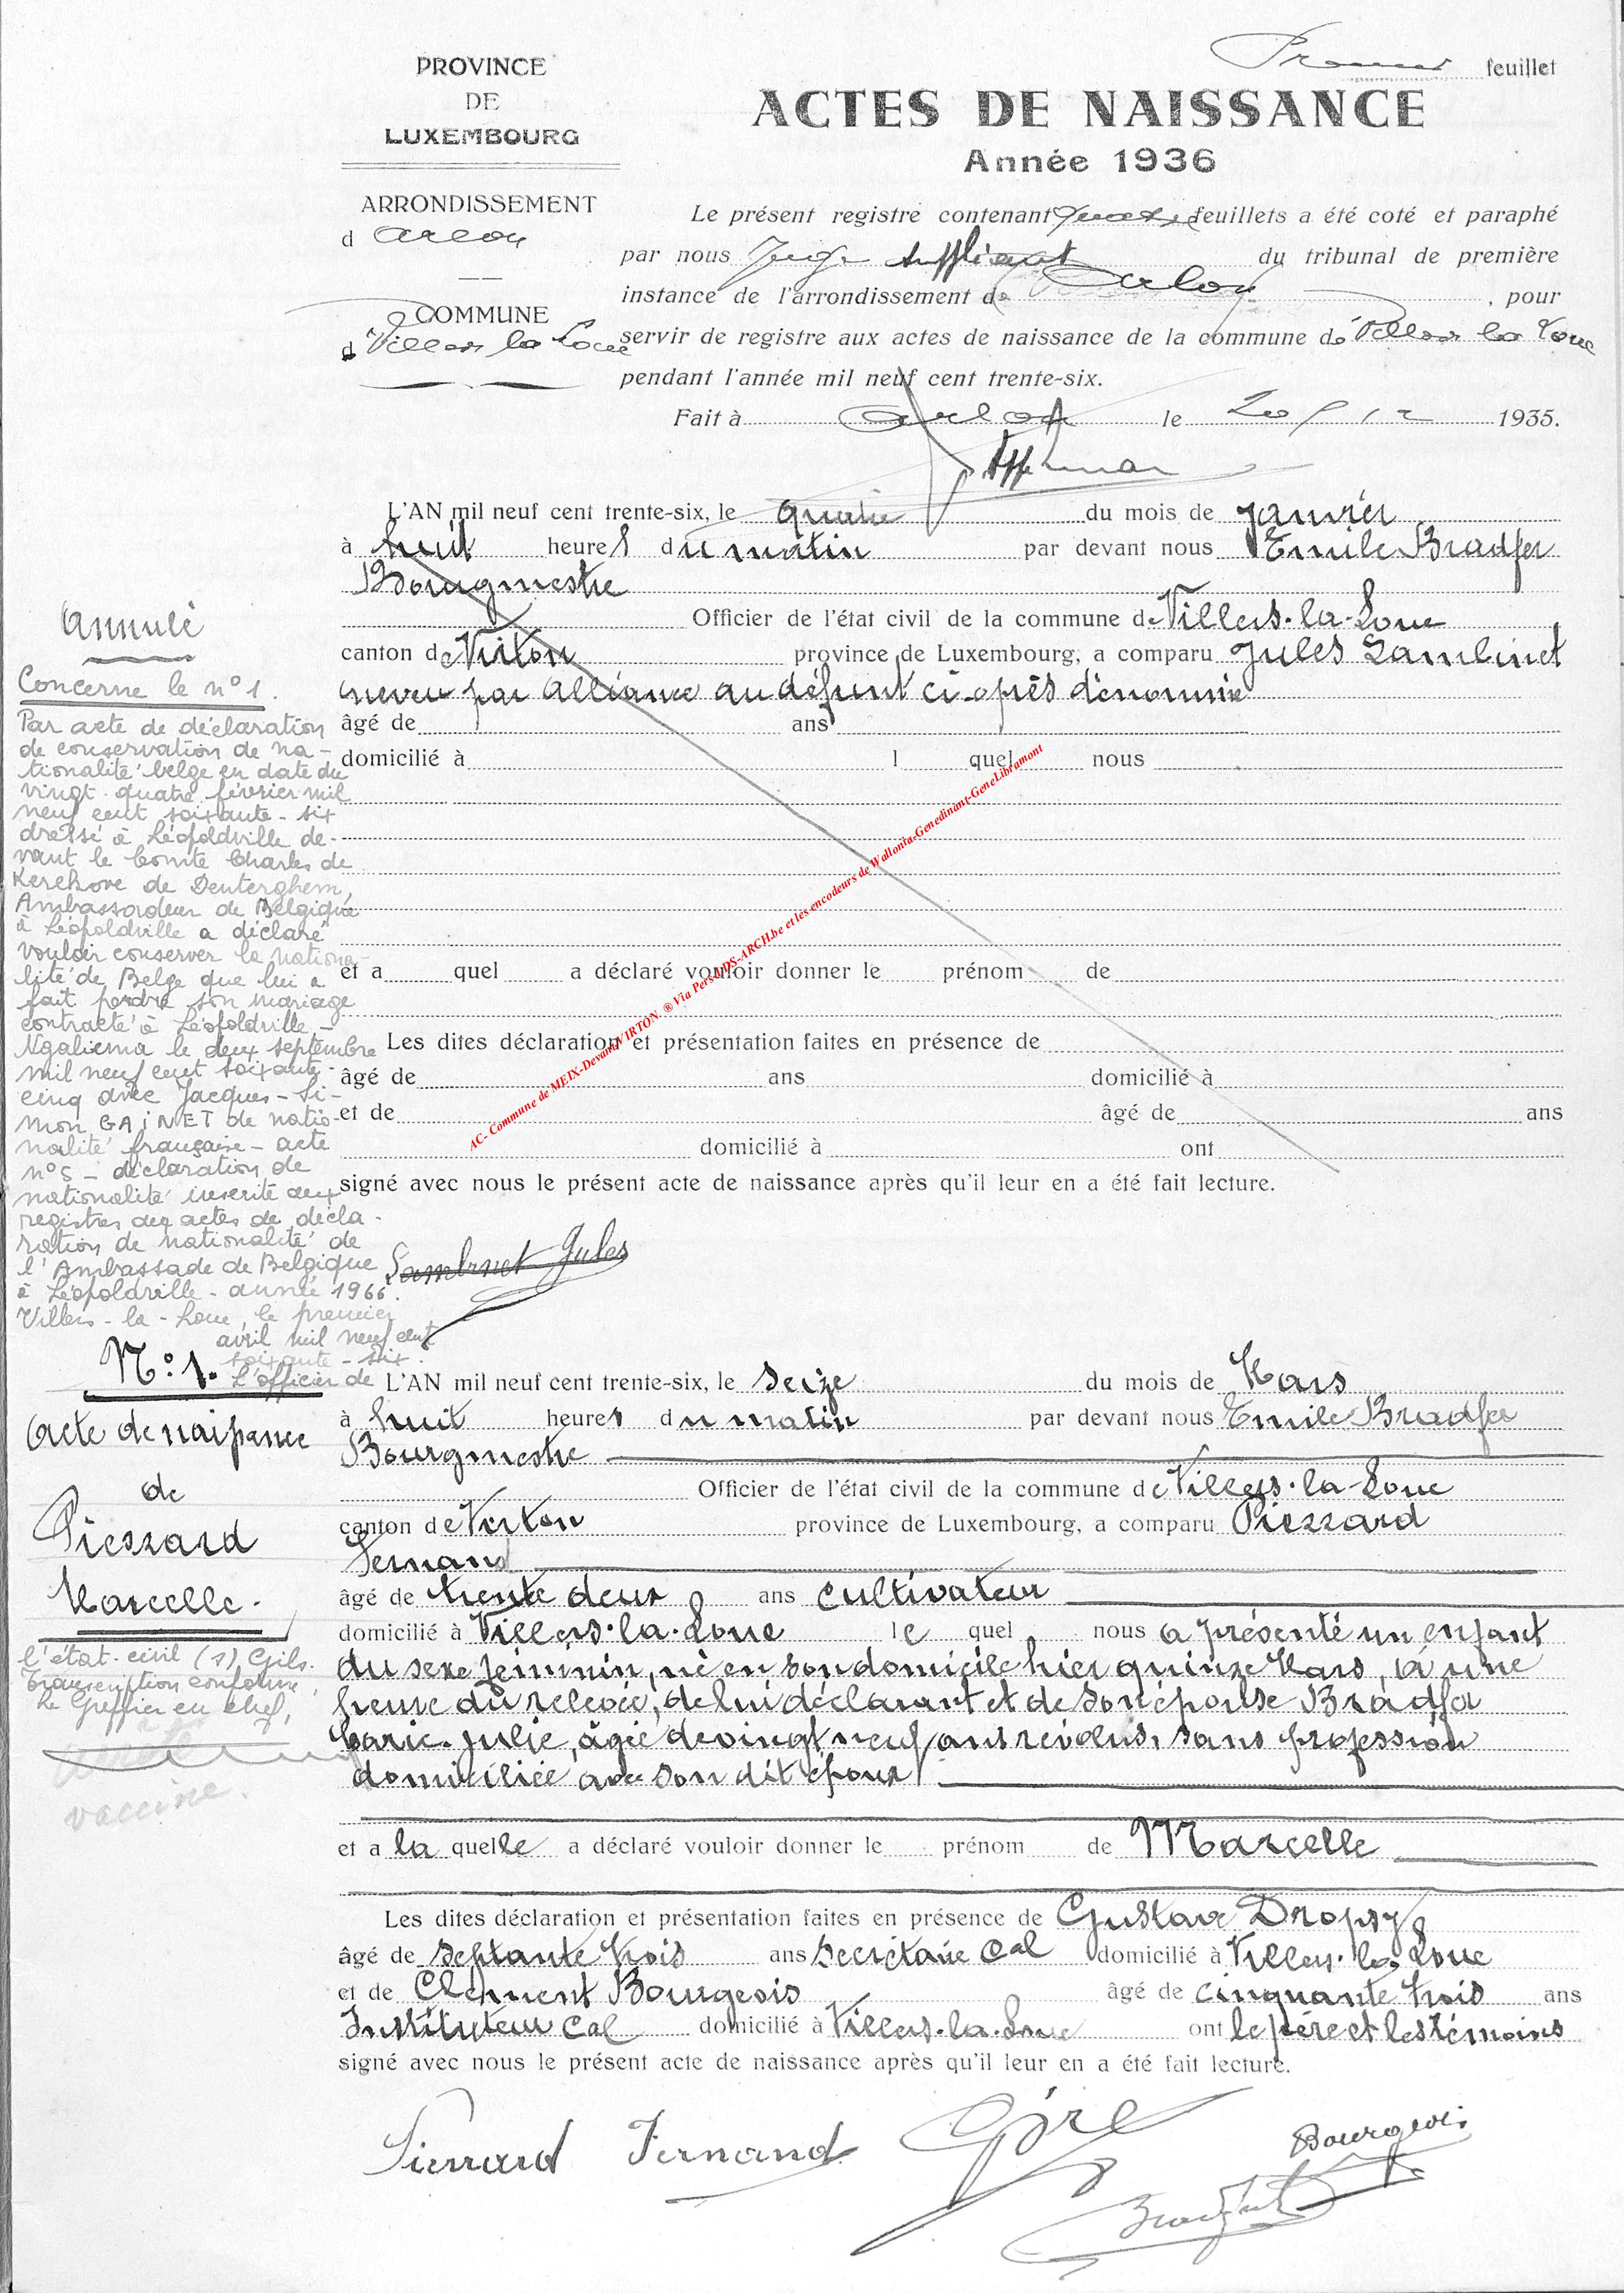 Premier feuillet
PROVINCE
DE
LUXEMBOURG
ACTES DE NAISSANCE
Année 1936
ARRONDISSEMENT
d Arlon
COMMUNE
d Villers la Loue
Le présent registre contenant feuillets a été coté et paraphé
par nous Juge suppléant du tribunal de première
instance de l'arrondissement de Arlon , pour
servir de registre aux actes de naissance de la commune de Villers la Loue
pendant l'année mil neuf cent trente-six.
Fait à Arlon le 20 / 12 1935.
L'AN mil neuf cent trente-six, le quatre du mois de janvier
à huit heures du matin par devant nous Emile Bradfer
Bourgmestre
Officier de l'état civil de la commune de Villers-la-Loue
canton de Virton province de Luxembourg, a comparu Jules Lambinet
neveu par alliance au défunt ci-après dénommé
âgé de ans
domicilié à l quel nous
et a quel a déclaré vouloir donner le prénom de
Les dites déclaration et présentation faites en présence de
âgé de ans domicilié à
et de âgé de ans
domicilié à ont
signé avec nous le présent acte de naissance après qu'il leur en a été fait lecture.
Lambinet Jules
AC- Commune de MEIX-Devant-VIRTON ® Via Pers-LDS-ARCH.be et les encodeurs de Wallonia-Genedinant-GeneLibramont
Annulé
Concerne le n° 1.
Par acte de déclaration
de conservation de na-
tionalité belge en date du
vingt-quatre février mil
neuf cent soixante-six
dressé à Léopoldville de-
vant le Comte Charles de
Kerchove de Denterghem,
Ambassadeur de Belgique
à Léopoldville a déclaré
vouloir conserver la nationa-
lité de Belge que lui a
fait perdre son mariage
contracté à Léopoldville-
Ngaliema le deux septembre
mil neuf cent soixante-
cinq avec Jacques-Si-
mon GAINET de natio-
nalité française - acte
n° 5 - déclaration de
nationalité inscrite aux
registres des actes de décla-
ration de nationalité de
l'Ambassade de Belgique
à Léopoldville - année 1966.
Villers-la-Loue, le premier
avril mil neuf cent
soixante-six.
L'officier de
N° 1.
Acte de naissance
de
Pierrard
Marcelle.
l'état-civil (s) Gils.
Transcription conforme,
Le Greffier en chef,
vacciné.
L'AN mil neuf cent trente-six, le seize du mois de Mars
à huit heures du matin par devant nous Emile Bradfer
Bourgmestre
Officier de l'état civil de la commune de Villers-la-Loue
canton de Virton province de Luxembourg, a comparu Pierrard
Fernand
âgé de trente deux ans cultivateur
domicilié à Villers-la-Loue le quel nous a présenté un enfant
du sexe féminin, né en son domicile hier quinze Mars, à une
heure du relevée, de lui déclarant et de son épouse Bradfer
Marie-Julie, âgée de vingt neuf ans révolus, sans profession
domiciliée avec son dit époux
et a la quelle a déclaré vouloir donner le prénom de Marcelle
Les dites déclaration et présentation faites en présence de Gustave Dropsy
âgé de septante trois ans secrétaire cal domicilié à Villers-la-Loue
et de Clément Bourgeois âgé de cinquante trois ans
Instituteur cal domicilié à Villers-la-Loue ont le père et les témoins
signé avec nous le présent acte de naissance après qu'il leur en a été fait lecture.
Pierrard Fernand
Bourgeois
Bradfer